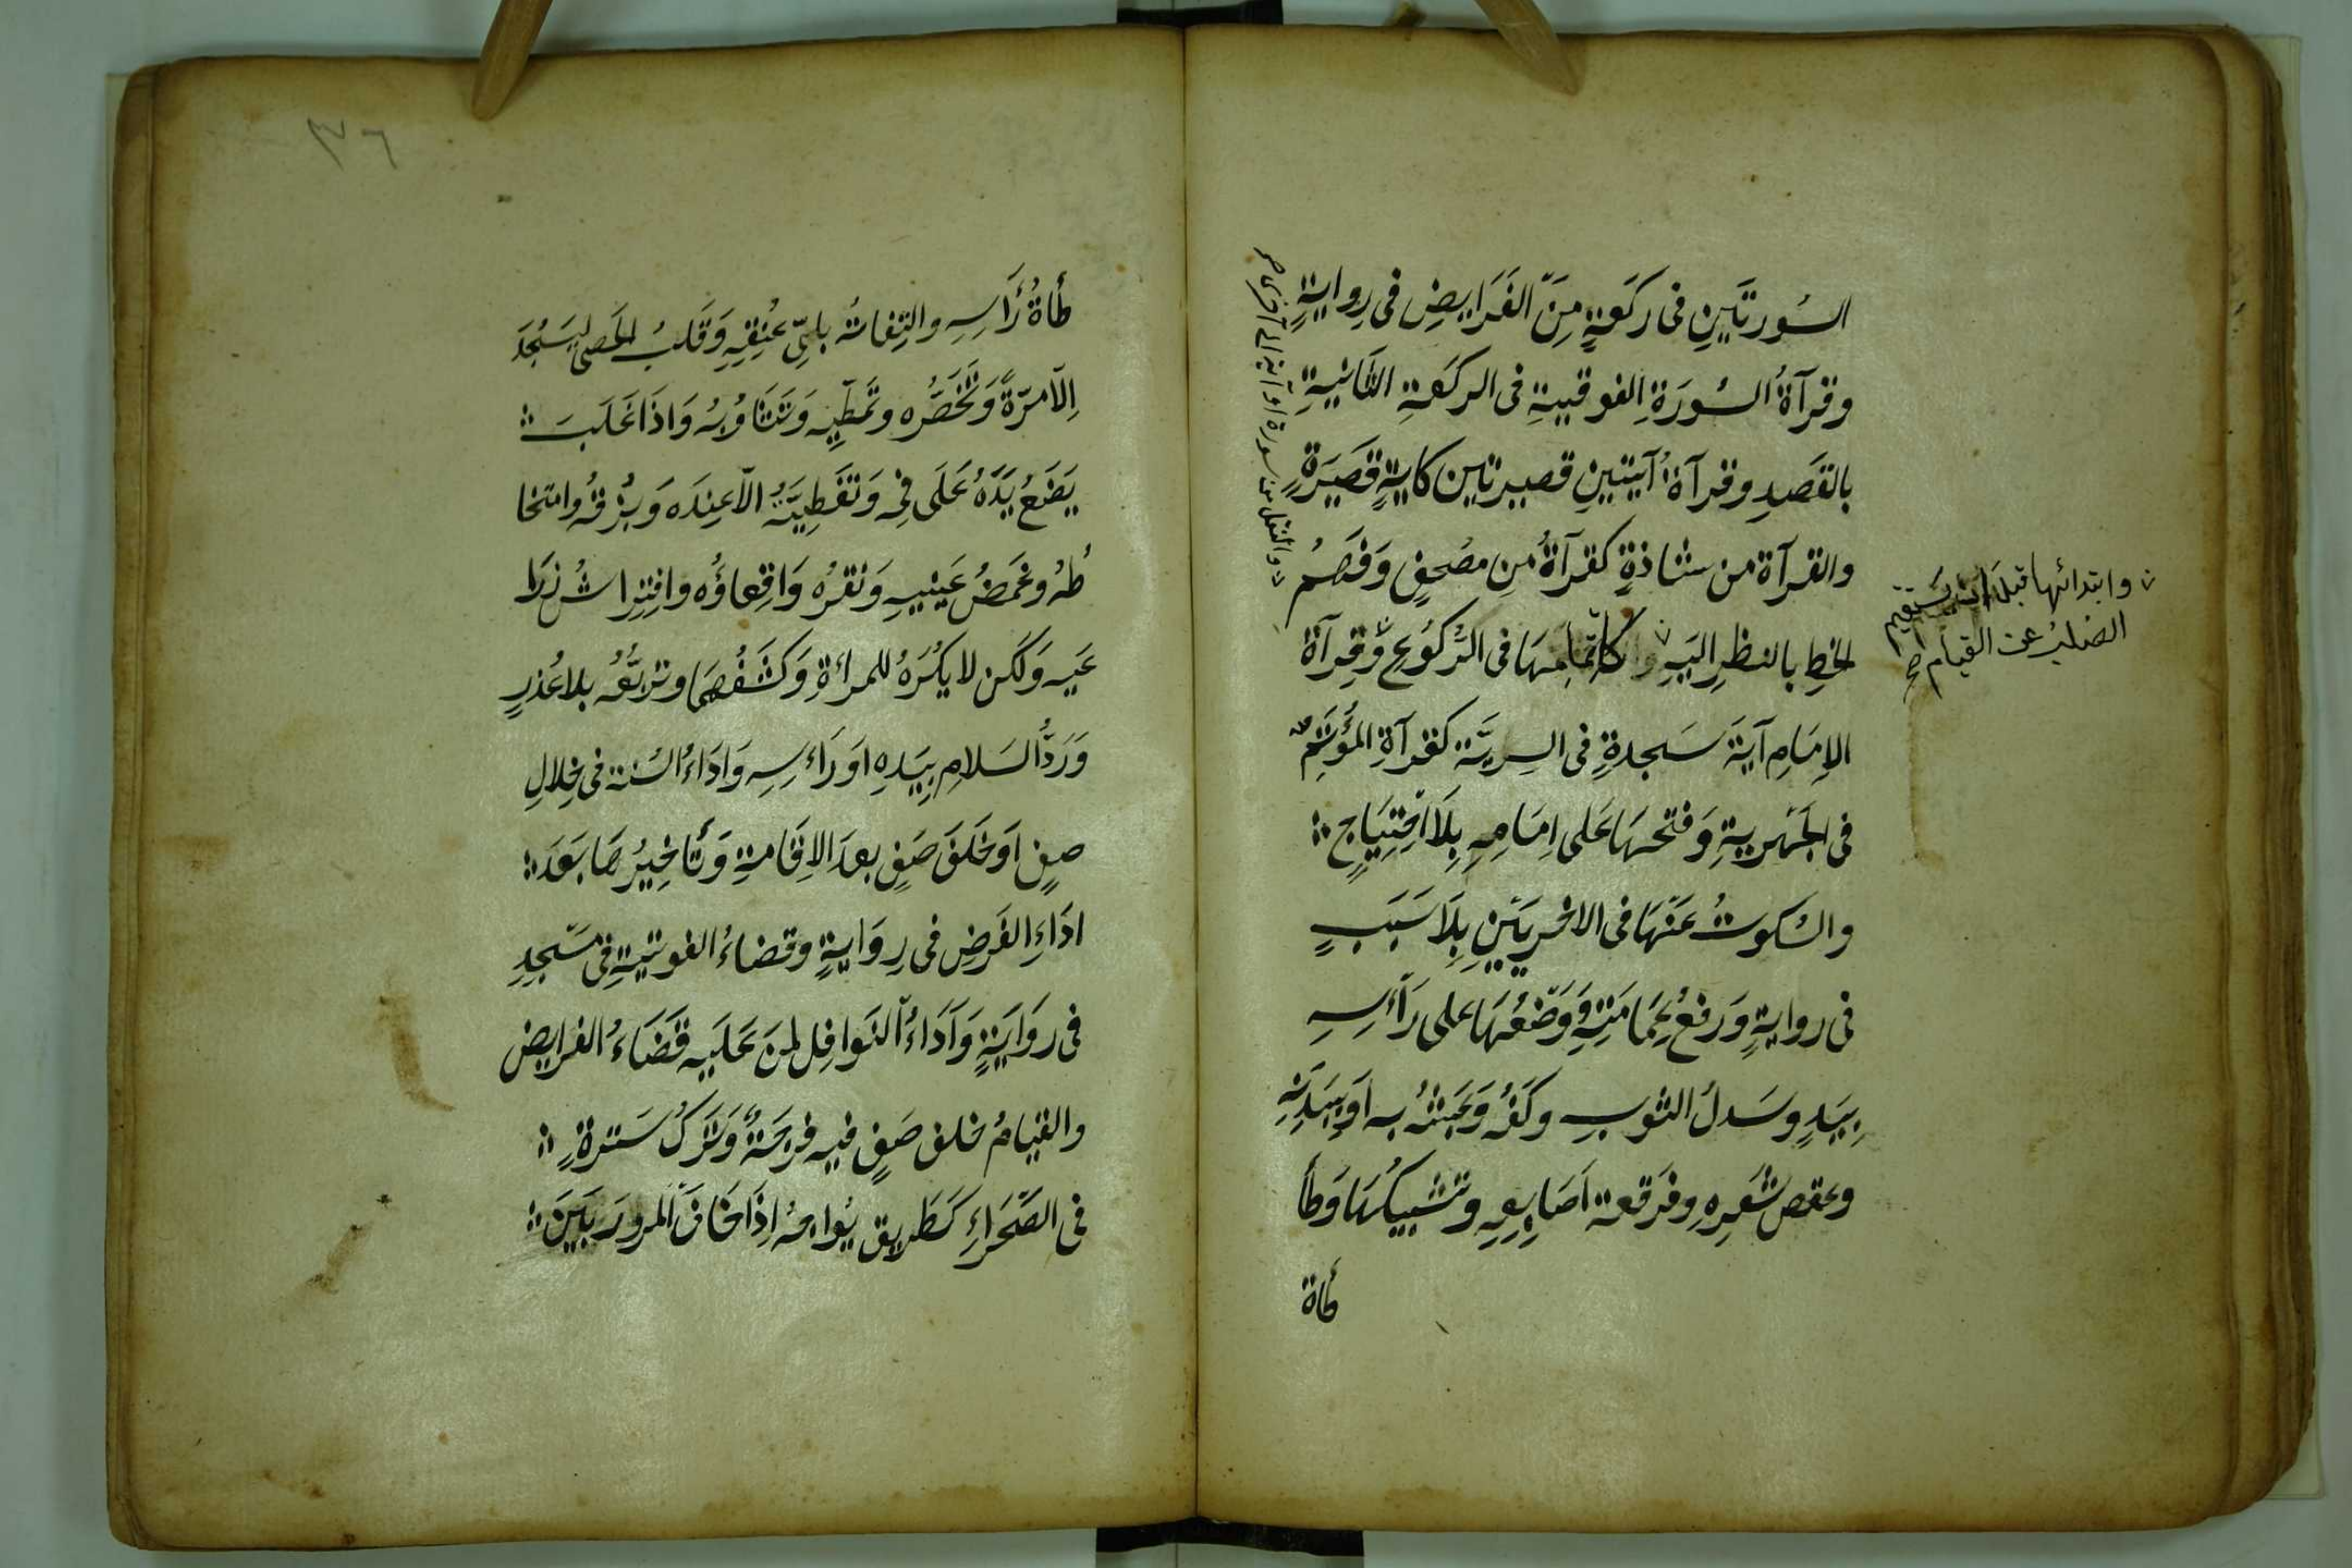 السُورتَينِ فى ركعَةٍ مِنَ الفَرَايضِ فى رِوايةٍ
وقرآةُ السُورَةِ الفوقيةِ فى الركعَةِ الثانيةِ
بالقَصدِ وقرآةُ آيتينِ قصيرتين كايةٍ قصَيرَةٍ
والقرآة من شاذةٍ كقرآةُ من مصُحفٍ وَفَهمُ
الخطِ بالنظرِ اليَهِ واتمامهَا فى الرُكوُعِ وَقِرآة
الإمَامِ آيَةَ سَجدةٍ فى السِريَّة كقرآةِ المؤُتَمِّ
فى الجَهريةِ وَفتحهَا عَلى اِمَامِهِ بِلَا اِحتِيَاجٍ
والسُكوتُ عَنهَا فى الاخريَينِ بِلَا سَبَبٍ
فى روايةٍ وَرفعُ عِمَامَتِهِ وَوَضعُهَا على رَاءسِهِ
بِيَدٍ وسَدلُ الثوبِ وكَفُه وَعَبثُه بِه اَو بِبَدَنِهِ
وعقصُ شَعرِهِ وفرَقعة اَصَابِعِهِ وتشبيكُهَا وَطأ
طأة
والنفل من سورة او آية الى آخرى صح
وابتدائها قبل ان يستقيم
الصُلبُ عن القيام صح
٣٦
طأةُ رَأسِهِ والتِفاتُه بلىِّ عُنُقِهِ وَقَلبُ الحَصى ليسَجُدَ
اِلّا مرّةً وَتَخَصُّره وتمَطِّيِه وَتَثَاوُبُه وَاذَا غَلَبَ
يَضَعُ يَدَهُ عَلَى فِه وَتَغَطِيَتُه الّا عِندَه وَبُزقُه وامتخا
طُه وغمَضُ عَينيهِ وَنقرُه وَاِقعاؤُه وافتِراشُ ذِرَا
عَيهِ وَلكن لا يُكرَهُ للمراءةِ وَكشفُهمَا وتربّعُه بلا عُذرٍ
وَرَدُّ السَلامِ بِيَدِهِ اَو رَاءسِهِ وَادَاءُ السُنة فى خِلالِ
صفٍ اَو خَلفَ صَفٍ بعدَ الاِقَامةِ وَتأخيرُهَا بَعدَ
ادَاءِ الفَرضِ فى رِوَايةٍ وقضاءُ الفوتيةِ فى مَسجدِ
فى روَايَةٍ وَاَدَاءُ النَوافِل لمنَ عَلَيهِ قَضَاءُ الفرايض
والقيامُ خلف صَفٍ فيه فرجَةٌ وَترَكُ سَترةٍ
فى الصَحَراءِ كَطَريقٍ يُواجهُ اِذَا خَافَ المرورَ بَيَن